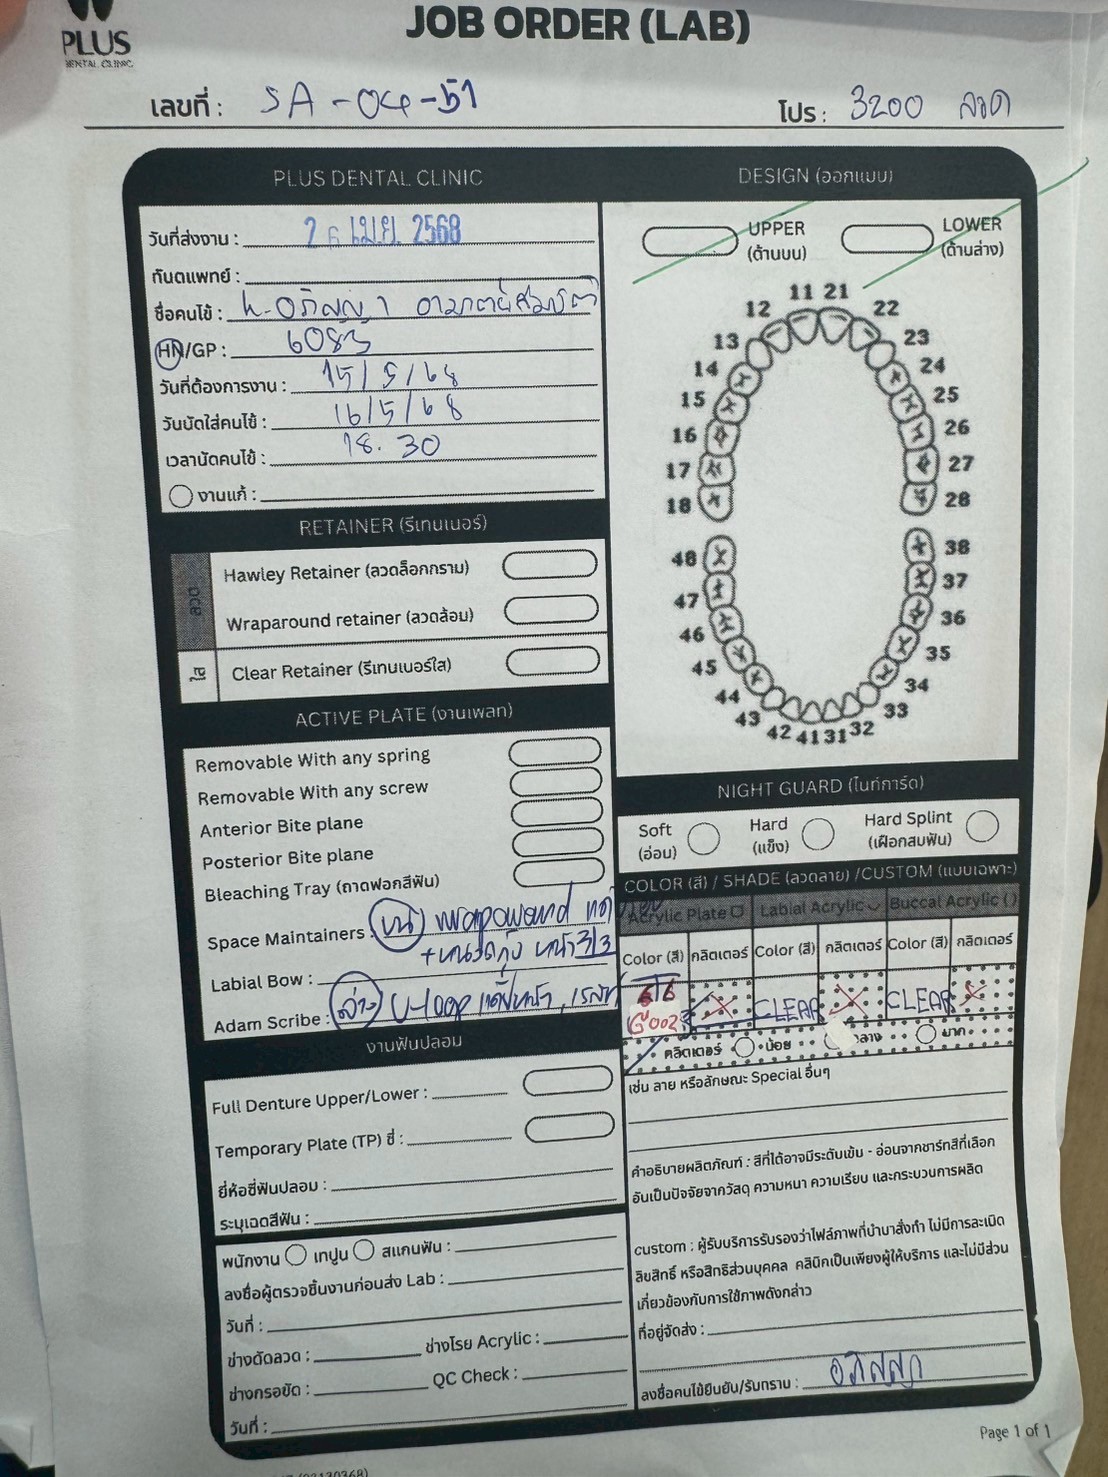 PLUS
DENTAL CLINIC
JOB ORDER (LAB)
เลขที่ : SA-04-51
โปร : 3200 ลวด
PLUS DENTAL CLINIC
วันที่ส่งงาน : 26 เม.ย. 2568
ทันตแพทย์ :
ชื่อคนไข้ :
HN/GP : 6083
วันที่ต้องการงาน : 15/5/68
วันนัดใส่คนไข้ : 16/5/68
เวลานัดคนไข้ : 18.30
งานแก้ :
RETAINER (รีเทนเนอร์)
ลวด
Hawley Retainer (ลวดล็อกกราม)
Wraparound retainer (ลวดล้อม)
ใส
Clear Retainer (รีเทนเนอร์ใส)
ACTIVE PLATE (งานเพลท)
Removable With any spring
Removable With any screw
Anterior Bite plane
Posterior Bite plane
Bleaching Tray (ถาดฟอกสีฟัน)
Space Maintainers : บน wraparound
Labial Bow :
Adam Scribe : ล่าง U-loop
งานฟันปลอม
Full Denture Upper/Lower :
Temporary Plate (TP) ซี่ :
ยี่ห้อซี่ฟันปลอม :
ระบุเฉดสีฟัน :
พนักงาน เทปูน สแกนฟัน :
ลงชื่อผู้ตรวจชิ้นงานก่อนส่ง Lab :
วันที่ :
ช่างดัดลวด : ช่างโรย Acrylic :
ช่างกรอขัด : QC Check :
วันที่ :
DESIGN (ออกแบบ)
UPPER
(ด้านบน)
LOWER
(ด้านล่าง)
11 21
12 22
13 23
14 24
15 25
16 26
17 27
18 28
48 38
47 37
46 36
45 35
44 34
43 33
42 41 31 32
NIGHT GUARD (ไนท์การ์ด)
Soft
(อ่อน)
Hard
(แข็ง)
Hard Splint
(เฝือกสบฟัน)
COLOR (สี) / SHADE (ลวดลาย) /CUSTOM (แบบเฉพาะ)
Acrylic Plate Labial Acrylic Buccal Acrylic ( )
Color (สี) กลิตเตอร์ Color (สี) กลิตเตอร์ Color (สี) กลิตเตอร์
G002 CLEAR CLEAR
กลิตเตอร์ น้อย กลาง มาก
เช่น ลาย หรือลักษณะ Special อื่นๆ
คำอธิบายผลิตภัณฑ์ : สีที่ได้อาจมีระดับเข้ม - อ่อนจากชาร์ทสีที่เลือก
อันเป็นปัจจัยจากวัสดุ ความหนา ความเรียบ และกระบวนการผลิต
custom : ผู้รับบริการรับรองว่าไฟล์ภาพที่นำมาสั่งทำ ไม่มีการละเมิด
ลิขสิทธิ์ หรือสิทธิส่วนบุคคล คลินิกเป็นเพียงผู้ให้บริการ และไม่มีส่วน
เกี่ยวข้องกับการใช้ภาพดังกล่าว
ที่อยู่จัดส่ง :
ลงชื่อคนไข้ยืนยัน/รับทราบ : อภิสญา
Page 1 of 1